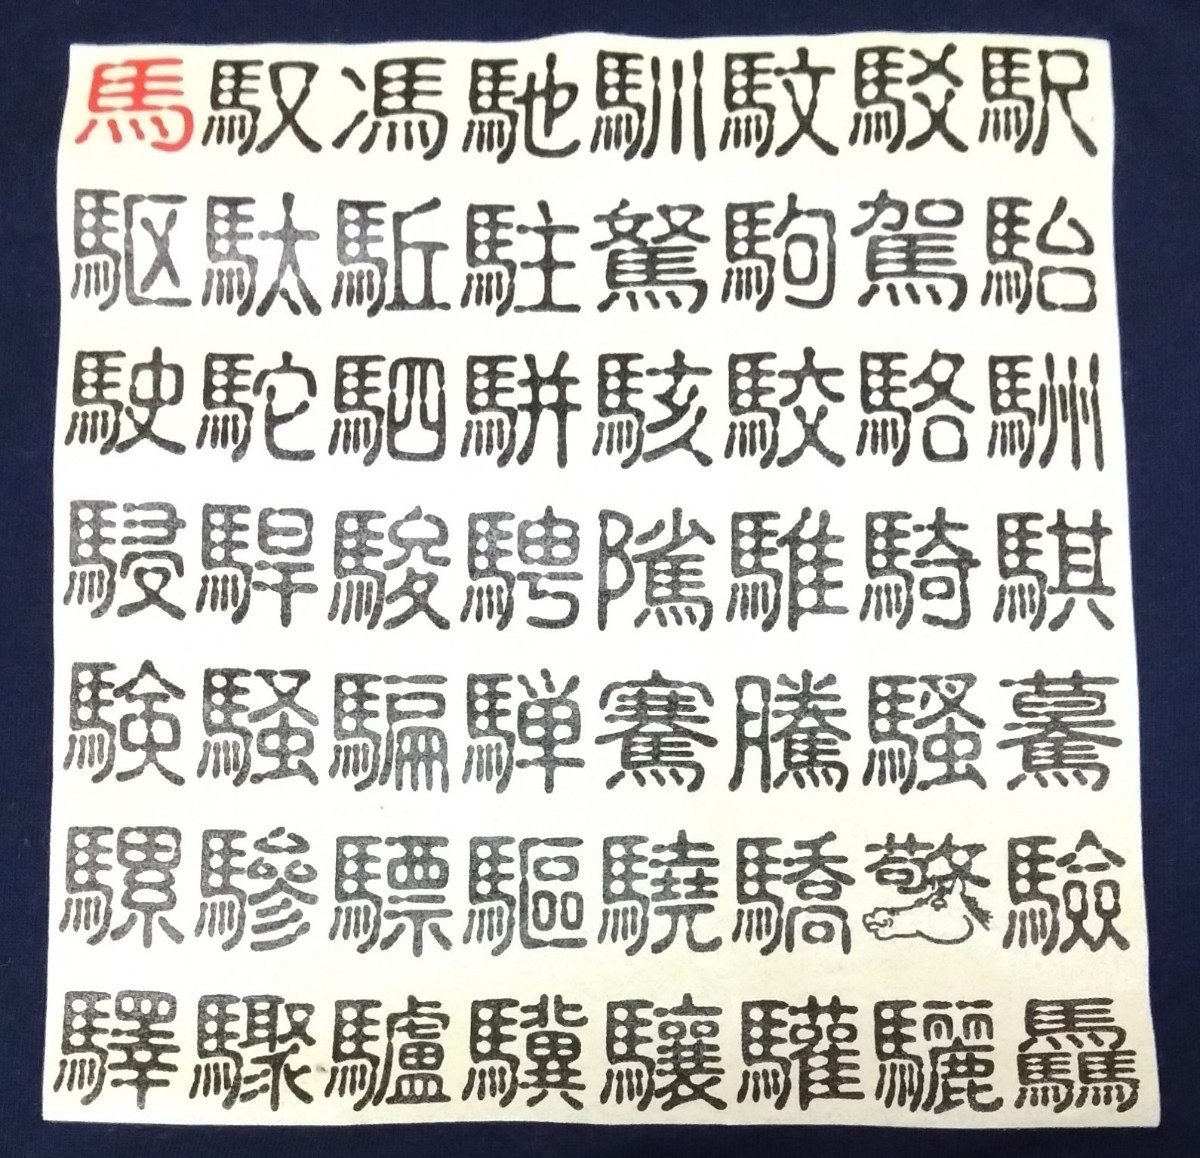 馬馭馮馳馴馼駁駅
駆駄駈駐駑駒駕駘
駛駝駟駢駭駮駱駲
駸駻駿騁隲騅騎騏
験騒騙騨騫騰騷驀
騾驂驃驅驍驕驚驗
驛驟驢驥驤驩驪驫